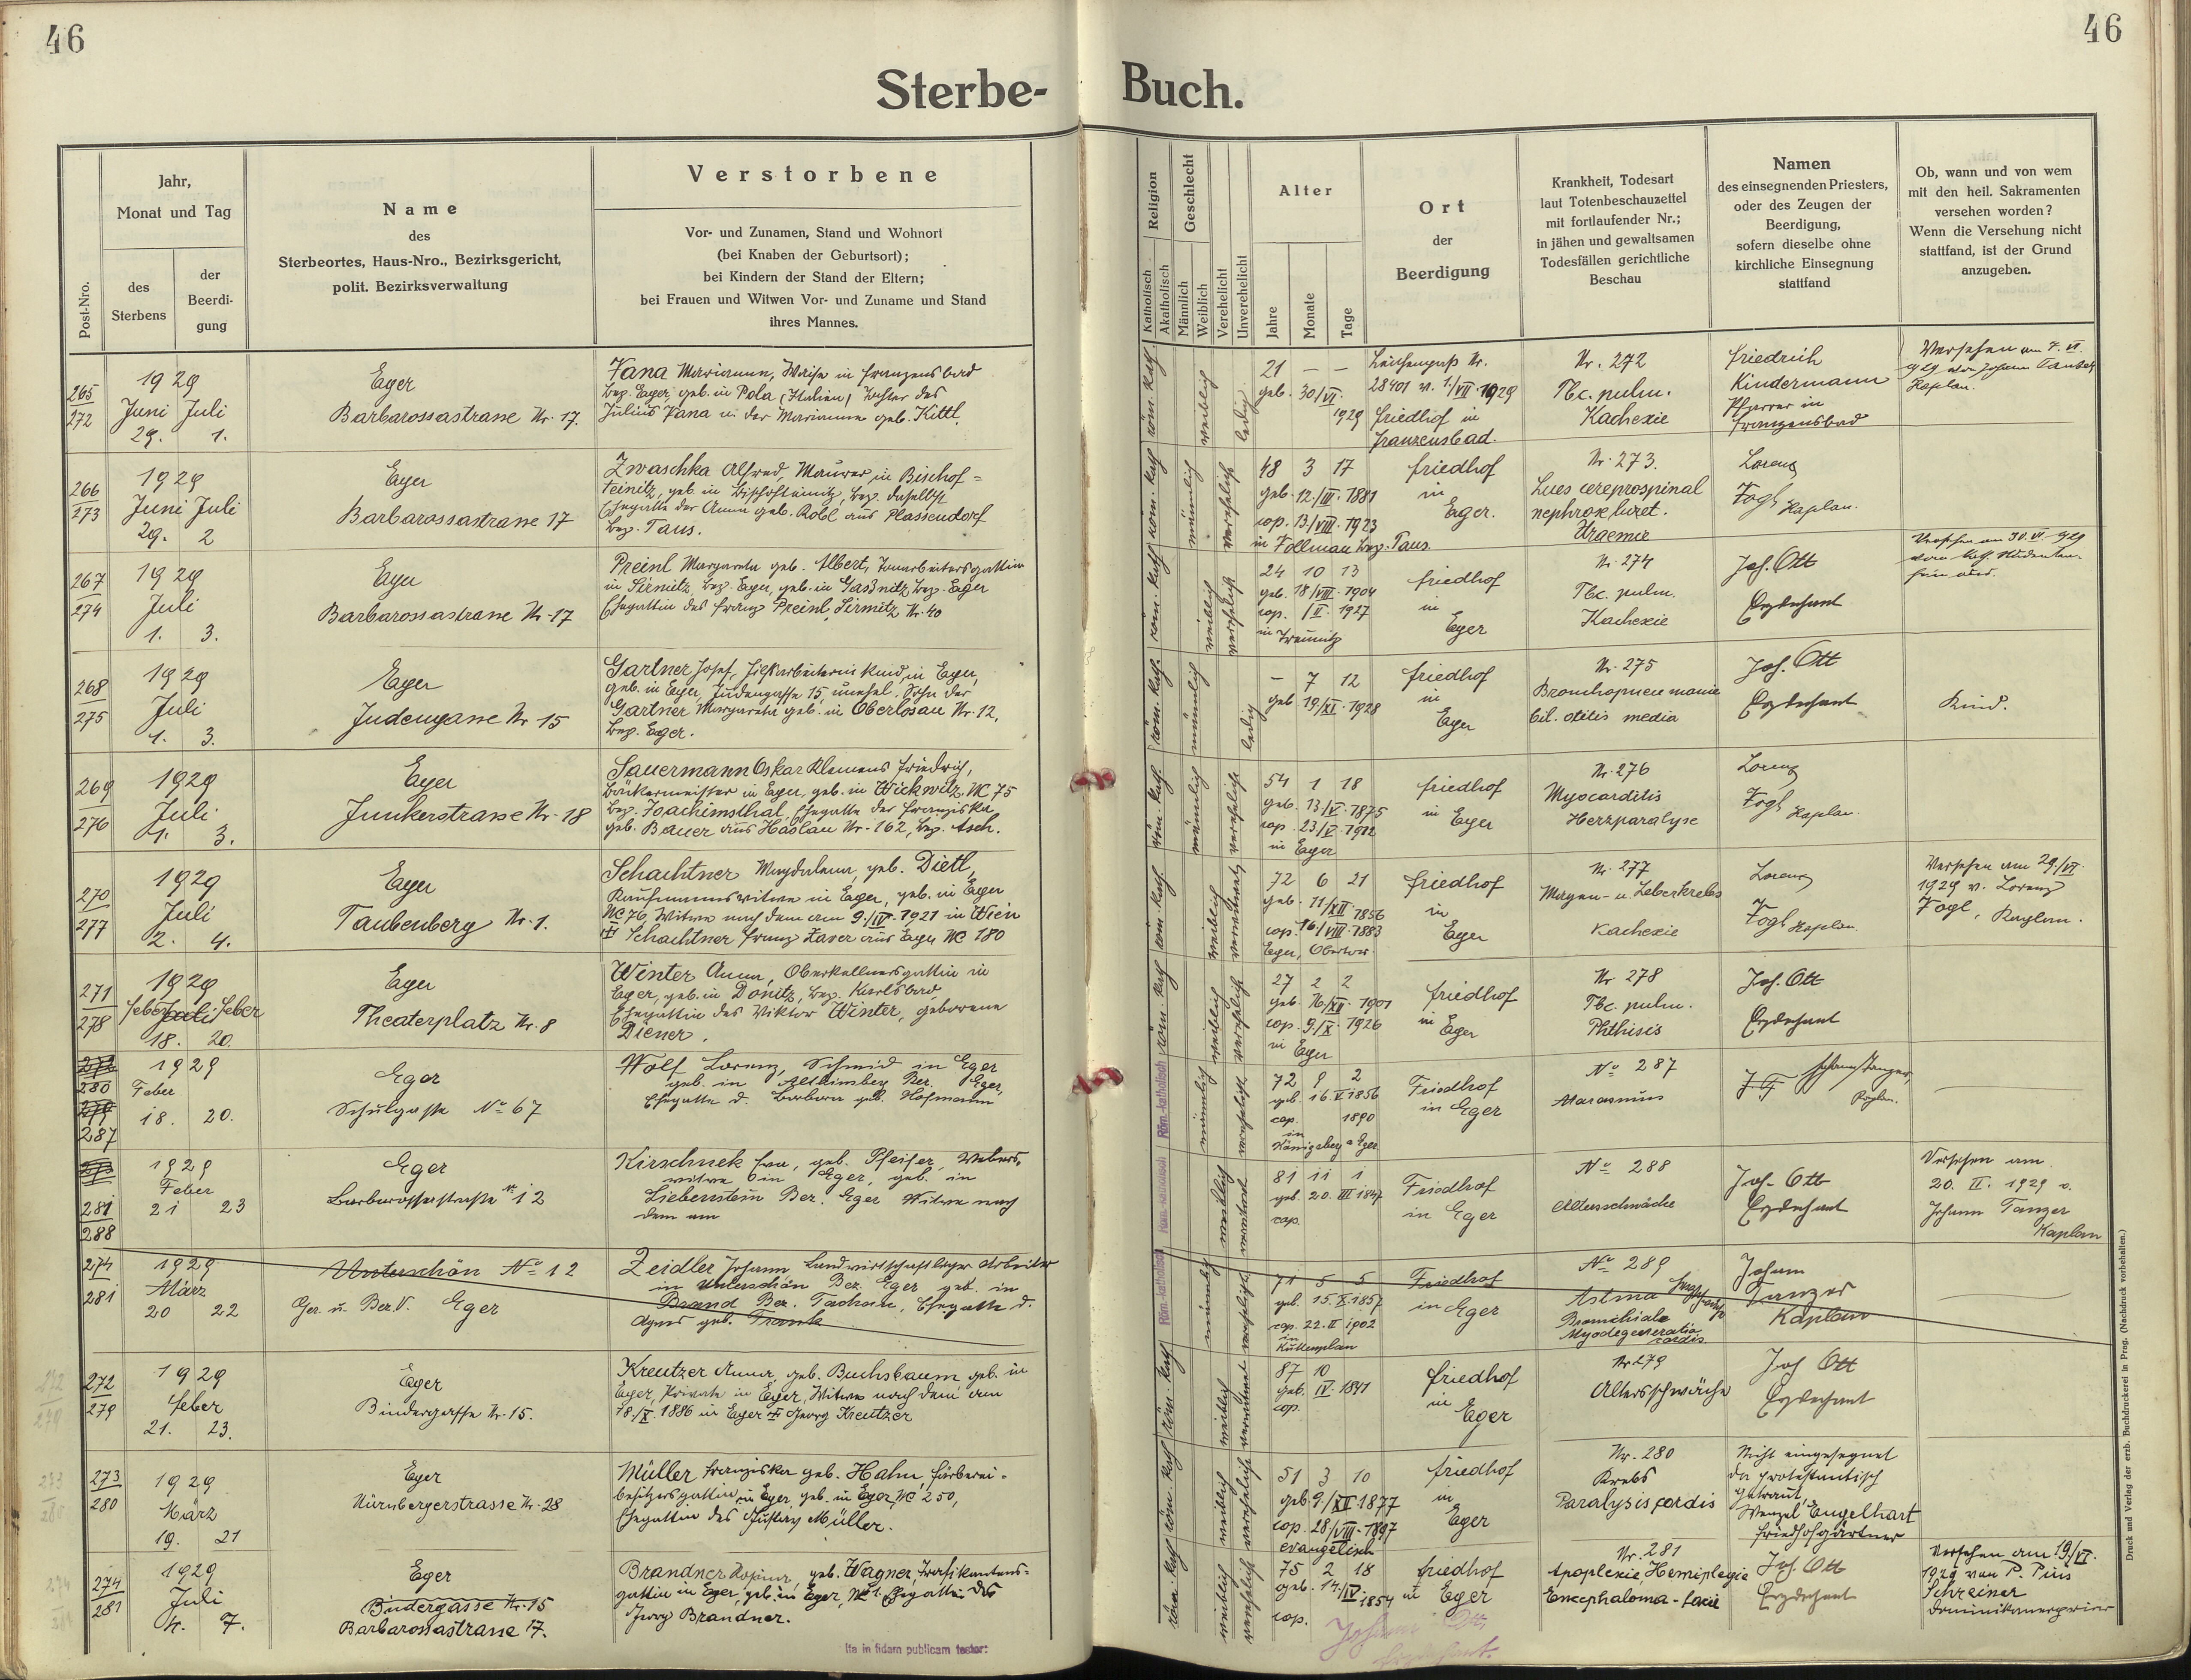 46
46
Sterbe-
Buch.
Post-Nro.
Jahr,
Monat und Tag
des
Sterbens
der
Beerdi-
gung
Name
des
Sterbeortes, Haus-Nro., Bezirksgericht,
polit. Bezirksverwaltung
Verstorbene
Vor- und Zunamen, Stand und Wohnort
(bei Knaben der Geburtsort);
bei Kindern der Stand der Eltern;
bei Frauen und Witwen Vor- und Zuname und Stand
ihres Mannes.
Religion
Katholisch
Akatholisch
Geschlecht
Männlich
Weiblich
Verehelicht
Unverehelicht
Alter
Jahre
Monate
Tage
Ort
der
Beerdigung
Krankheit, Todesart
laut Totenbeschauzettel
mit fortlaufender Nr.;
in jähen und gewaltsamen
Todesfällen gerichtliche
Beschau
Namen
des einsegnenden Priesters,
oder des Zeugen der
Beerdigung,
sofern dieselbe ohne
kirchliche Einsegnung
stattfand
Ob, wann und von wem
mit den heil. Sakramenten
versehen worden?
Wenn die Versehung nicht
stattfand, ist der Grund
anzugeben.
265
272
1929
Juni Juli
29. 1.
Eger
Barbarossastrasse Nr. 17.
Marianne, Waise in Franzensbad
Bez. Eger, geb. in Pola (Italien) Tochter des
Julius Pana u. der Marianne geb. Kittl.
röm. kath.
weiblich
ledig
21 — —
geb. 30/VI.
1929
Leichenpass Nr.
28401 v. 1./VII 1929
Friedhof in
Franzensbad.
Nr. 272
Tbc. pulm.
Kachexie
Friedrich
Kindermann
Pfarrer in
Franzensbad
Versehen am 7. VI.
929 von Johann Tanzer
Kaplan.
266
273
1929
Juni Juli
29. 2
Eger
Barbarossastrasse 17
Zwaschka Alfred, Maurer in Bischof=
teinitz, geb. in Bischofteinitz, Bez. daselbst
Ehegatte der Anna geb. Robl aus Plassendorf
Bez. Taus.
röm. kath
männlich
verehelicht
48 3 17
geb. 12./III. 1881
cop. 13./VIII. 1923
in Follmau Bez. Taus.
Friedhof
in
Eger.
Nr. 273.
Lues cereprospinal
Uraemie
Lorenz
Vogl Kaplan.
267
274
1929
Juli
1. 3.
Eger
Barbarossastrasse Nr. 17
Preinl Margareta geb. Albert,
in Sirmitz, Bez. Eger, geb. in Gaßnitz Bez. Eger
Ehegattin des Franz Preinl, Sirmitz Nr. 40
röm. kath
weiblich
verehelicht
24 10 13
geb. 18/VIII. 1904
cop. /II. 1927
in Treunitz
Friedhof
in
Eger
Nr. 274
Tbc. pulm.
Kachexie
Joh. Ott
Erzdechant
Versehen am 30. VI. 929
268
275
1929
Juli
1. 3.
Eger
Judengasse Nr 15
Gartner Josef, Hilfsarbeiterins Kind, in Eger,
geb. in Eger, Judengasse 15, unehel. Sohn der
Gartner Margareta geb. in Oberlosau Nr. 12,
Bez. Eger.
röm. kath.
männlich
ledig
— 7 12
geb 19/XI. 1928
Friedhof
in
Eger
Nr. 275
Bronchopneumonie
bil. otitis media
Joh. Ott
Erzdechant
Kind.
269
276
1929
Juli
1. 3.
Eger
Junkerstrasse Nr. 18
Sauermann Oskar Klemens Friedrich,
Bäckermeister in Eger, geb. in Wickwitz, NC 75
Bez. Joachimsthal, Ehegatte der Franziska
geb. Bauer aus Haslau Nr. 162, Bez. Asch.
röm. kath.
männlich
verehelicht
54 1 18
geb. 13./V. 1875
cop. 23./V. 1902
in Eger
Friedhof
in Eger
Nr. 276
Myocarditis
Herzparalyse
Lorenz
Vogl Kaplan.
270
277
1929
Juli
2. 4.
Eger
Taubenberg Nr. 1.
Schachtner Magdalena, geb. Dietl,
Kaufmannswitwe in Eger, geb. in Eger
NC 76, Witwe nach dem am 9./IV. 1921 in Wien
Schachtner Franz Xaver aus Eger NC 180
röm. kath.
weiblich
verwitwet
72 6 21
geb. 11/XII. 1856
cop. 16./VIII 1883
Eger, Obertor
Friedhof
in
Eger
Nr. 277
Magen- u. Leberkrebs
Kachexie
Lorenz
Vogl Kaplan.
Versehen am 29./VI.
1929 v. Lorenz
Vogl, Kaplan.
271
278
1929
Feber Juli Feber
18. 20.
Eger
Theaterplatz Nr. 8
Winter Anna, Oberkellnersgattin in
Eger, geb. in Donitz, Bez. Karlsbad,
Ehegattin des Viktor Winter, geborene
Diener.
röm. kath
weiblich
verehelicht
27 2 2
geb. 16./XII. 1901
cop. 9./X. 1926
in Eger
Friedhof
in
Eger
Nr 278
Tbc. pulm.
Phthisis
Joh. Ott
Erzdechant
272
280
279
287
1929
Feber
18. 20.
Eger
Schulgasse No 67
Wolf Lorenz, Schmid in Eger
geb. in Ber. Eger,
Ehegatte d. Barbara geb. Hofmann
Röm.-katholisch
männlich
verehelicht
72 9 2
geb. 16. V 1856
cop. 1890
in
Königsberg a Eger
Friedhof
in Eger
No 287
Marasmus
Johann Tanzer,
Kaplan.
281
288
1929
Feber
21 23
Eger
Barbarossastrasse Nr 12
Kirschnek Eva, geb. Pfeifer, Webers,
witwe in Eger, geb. in
Liebenstein Ber. Eger Witwe nach
dem am
Röm.-katholisch
weiblich
verwitwet
81 11 1
geb. 20. III 1847
cop.
Friedhof
in Eger
No 288
Altersschwäche
Joh. Ott
Erzdechant
Versehen am
20. II. 1929 v.
Johann Tanzer
Kaplan
274
281
1929
März
20 22
Unterschön No 12
Ger. u. Ber. V. Eger
Zeidler Johann Landwirtschaftlicher Arbeiter
in Unterschön Bez. Eger geb. in
Brand Ber. Tachau, Ehegatte d.
Agnes geb. Frank
Röm.-katholisch
männlich
verehelicht
71 5 5
geb. 15. X 1857
cop. 22. II 1902
in
Kuttenplan
Friedhof
in Eger
No 289
Astma
Bronchiale
Myodegeneratio
cordis
Johann
Tanzer
Kaplan
272
279
272
279
1929
Feber
21. 23.
Eger
Bindergasse Nr. 15.
Kreutzer Anna, geb. Buchsbaum geb. in
Eger, Private in Eger, Witwe nach dem am
18./X. 1886 in Eger Georg Kreutzer
röm. kath
weiblich
verwitwet
87 10
geb. IV. 1841
cop.
Friedhof
in
Eger
Nr 279
Altersschwäche
Joh Ott
Erzdechant
273
280
273
280
1929
März
19. 21
Eger
Nürnbergerstrasse Nr. 28
Müller Franziska geb. Hahn, Färberei-
besitzersgattin in Eger, geb. in Eger, NC 250,
Ehegattin des Gustav Müller.
röm. kath
weiblich
verehelicht
51 3 10
geb 9./XII 1877
cop. 28/VIII. 1897
evangelisch
Friedhof
in
Eger
Nr. 280
Krebs
Paralysis cordis
Nicht eingesegnet
da protestantisch
getraut,
Wenzel Engelhart
Friedhofgärtner
274
281
274
281
1929
Juli
4. 7.
Eger
Bindergasse Nr. 15
Barbarossastrasse 17.
Brandner Rosina, geb. Wagner, Trafikantens-
gattin in Eger, geb. in Eger, Ehegattin des
Georg Brandner.
röm. kath
weiblich
verehelicht
75 2 18
geb. 14./IV 1854
cop.
Friedhof
in Eger
Nr. 281
Apoplexie, Hemiplegie
Joh. Ott
Erzdechant
Versehen am 19./VI.
1929 von P. Pius
Schreiner
Dominikanerprior
Ita in fidam publicam testor:
Johann Ott,
Erzdechant.
Druck und Verlag der erzb. Buchdruckerei in Prag. (Nachdruck vorbehalten.)